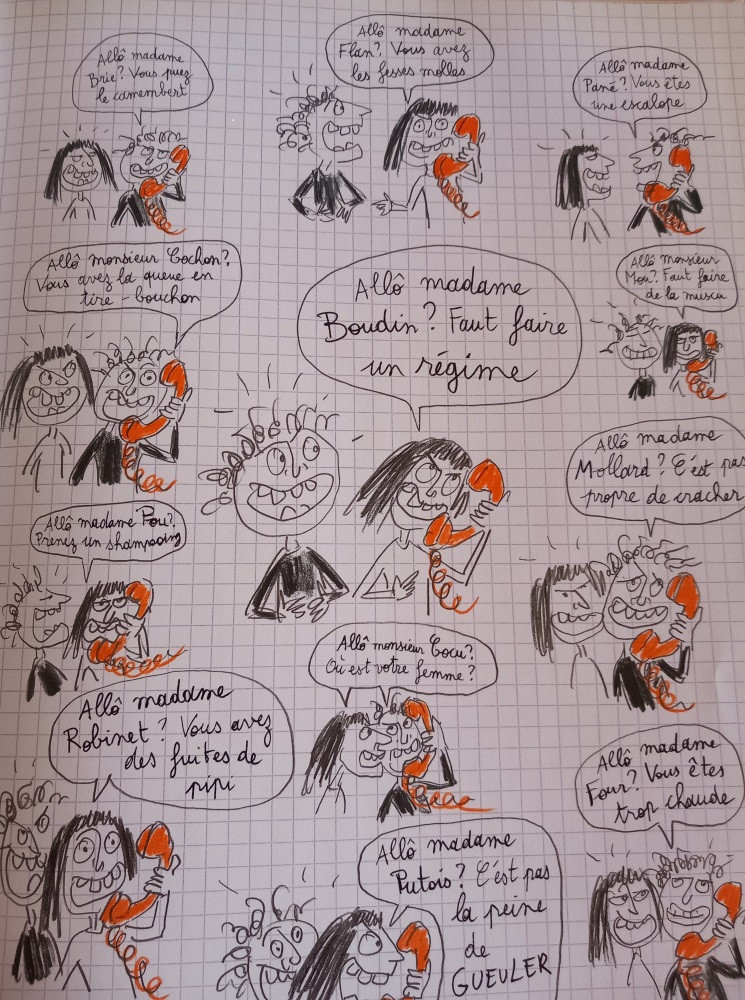 Allô madame
Brie? Vous puez
le camembert
Allô madame
Flan? Vous avez
les fesses molles
Allô madame
Pané? Vous êtes
une escalope
Allô monsieur Cochon?
Vous avez la queue en
tire-bouchon
Allô madame
Boudin? Faut faire
un régime
Allô monsieur
Mou? Faut faire
de la muscu
Allô madame
Mollard? C'est pas
propre de cracher
Allô madame Pou?
Prenez un shampooing
Allô monsieur Cocu?
Où est votre femme?
Allô madame
Robinet? Vous avez
des fuites de
pipi
Allô madame
Four? Vous êtes
trop chaude
Allô madame
Putois? C'est pas
la peine
de
GUEULER